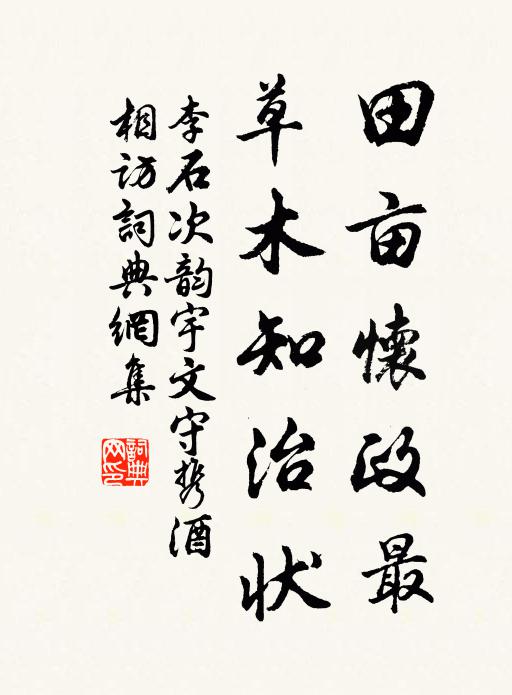 田亩懷政最
草木知治状
李石次韵宇文守携酒
相访詞典網集
詞典
网印